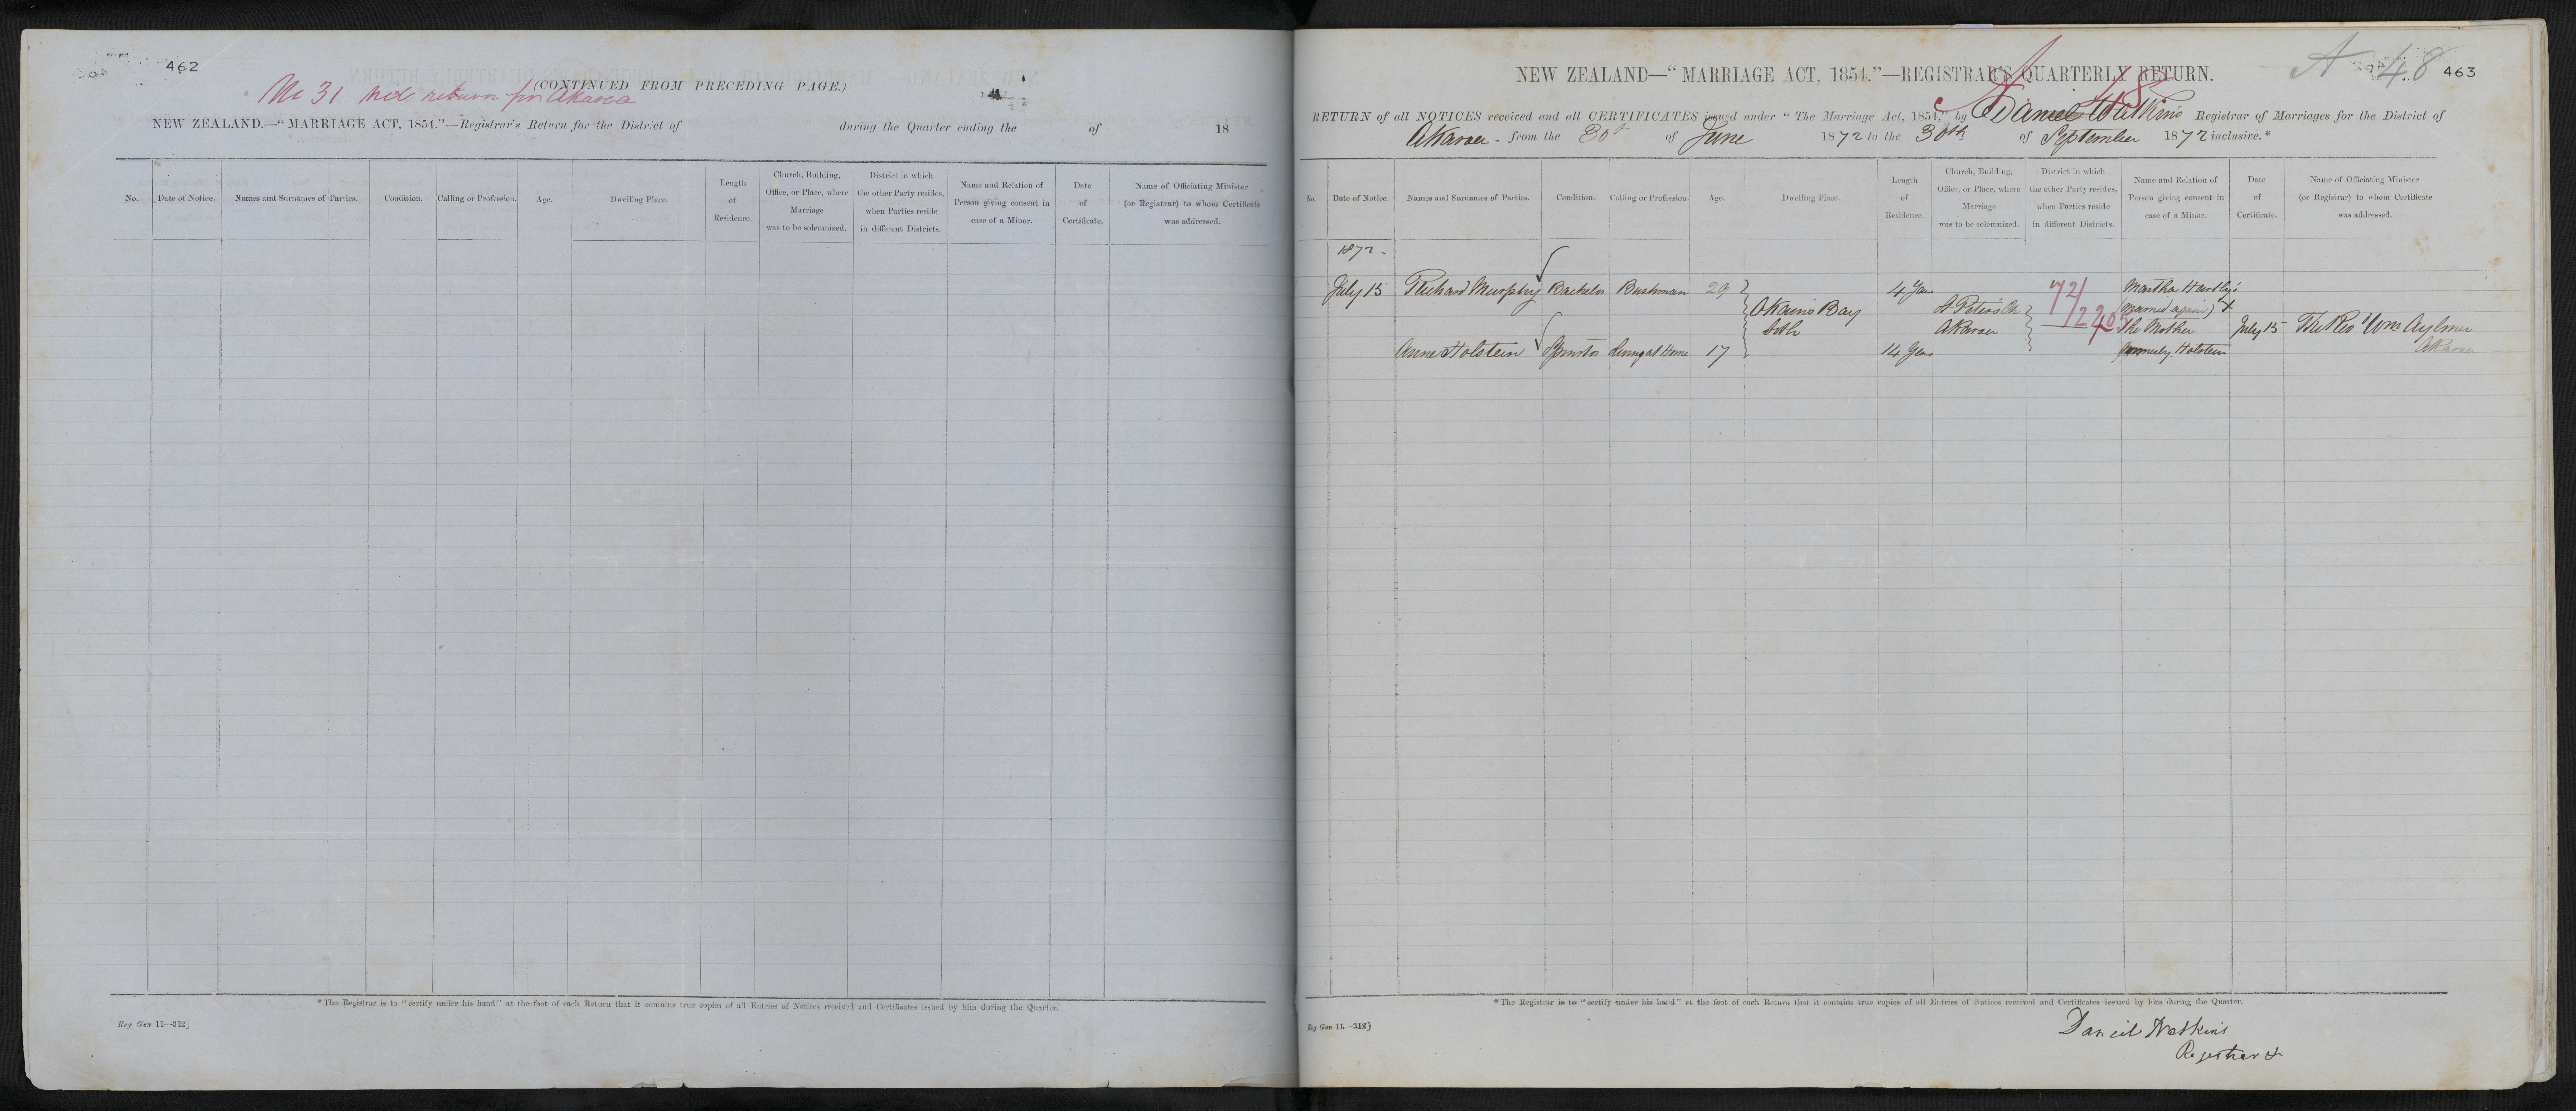 462
No 31 nil return for Akaroa
(CONTINUED FROM PRECEDING PAGE.)
NEW ZEALAND.—“MARRIAGE ACT, 1854.”—Registrar's Return for the District of during the Quarter ending the of 18
No. Date of Notice. Names and Surnames of Parties. Condition. Calling or Profession. Age. Dwelling Place. Length of Residence. Church, Building, Office, or Place, where Marriage was to be solemnized. District in which the other Party resides, when Parties reside in different Districts. Name and Relation of Person giving consent in case of a Minor. Date of Certificate. Name of Officiating Minister (or Registrar) to whom Certificate was addressed.
*The Registrar is to “certify under his hand” at the foot of each Return that it contains true copies of all Entries of Notices received and Certificates issued by him during the Quarter.
Reg Gen 11—312]
A 48 463
NEW ZEALAND—“MARRIAGE ACT, 1854.”—REGISTRAR'S QUARTERLY RETURN.
RETURN of all NOTICES received and all CERTIFICATES issued under “The Marriage Act, 1854,” by Daniel Watkins Registrar of Marriages for the District of
Akaroa - from the 30th of June 1872 to the 30th of September 1872 inclusive.*
No. Date of Notice. Names and Surnames of Parties. Condition. Calling or Profession. Age. Dwelling Place. Length of Residence. Church, Building, Office, or Place, where Marriage was to be solemnized. District in which the other Party resides, when Parties reside in different Districts. Name and Relation of Person giving consent in case of a Minor. Date of Certificate. Name of Officiating Minister (or Registrar) to whom Certificate was addressed.
1872 -
July 15 Richard Murphy Bachelor Bushman 29 4 Years 72/ Martha
Okains Bay St Peter's Ch (married again)
both Akaroa The Mother July 15 The Rev Wm Aylmer
Anne Holstein Spinster Living at Home 17 14 Years formerly Holstein Akaroa
*The Registrar is to “certify under his hand” at the foot of each Return that it contains true copies of all Entries of Notices received and Certificates issued by him during the Quarter.
Reg Gen 11—312]
Daniel Watkins
Registrar